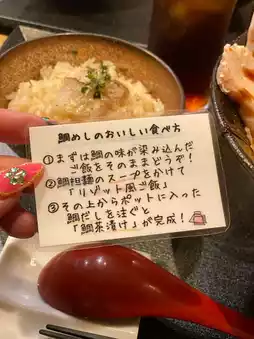 鯛めしのおいしい食べ方
①まずは鯛の味が染み込んだ
ご飯をそのままどうぞ!
②鯛担麺のスープをかけて
「リゾット風ご飯」
③その上からポットに入った
鯛だしを注ぐと
「鯛茶漬け」が完成!